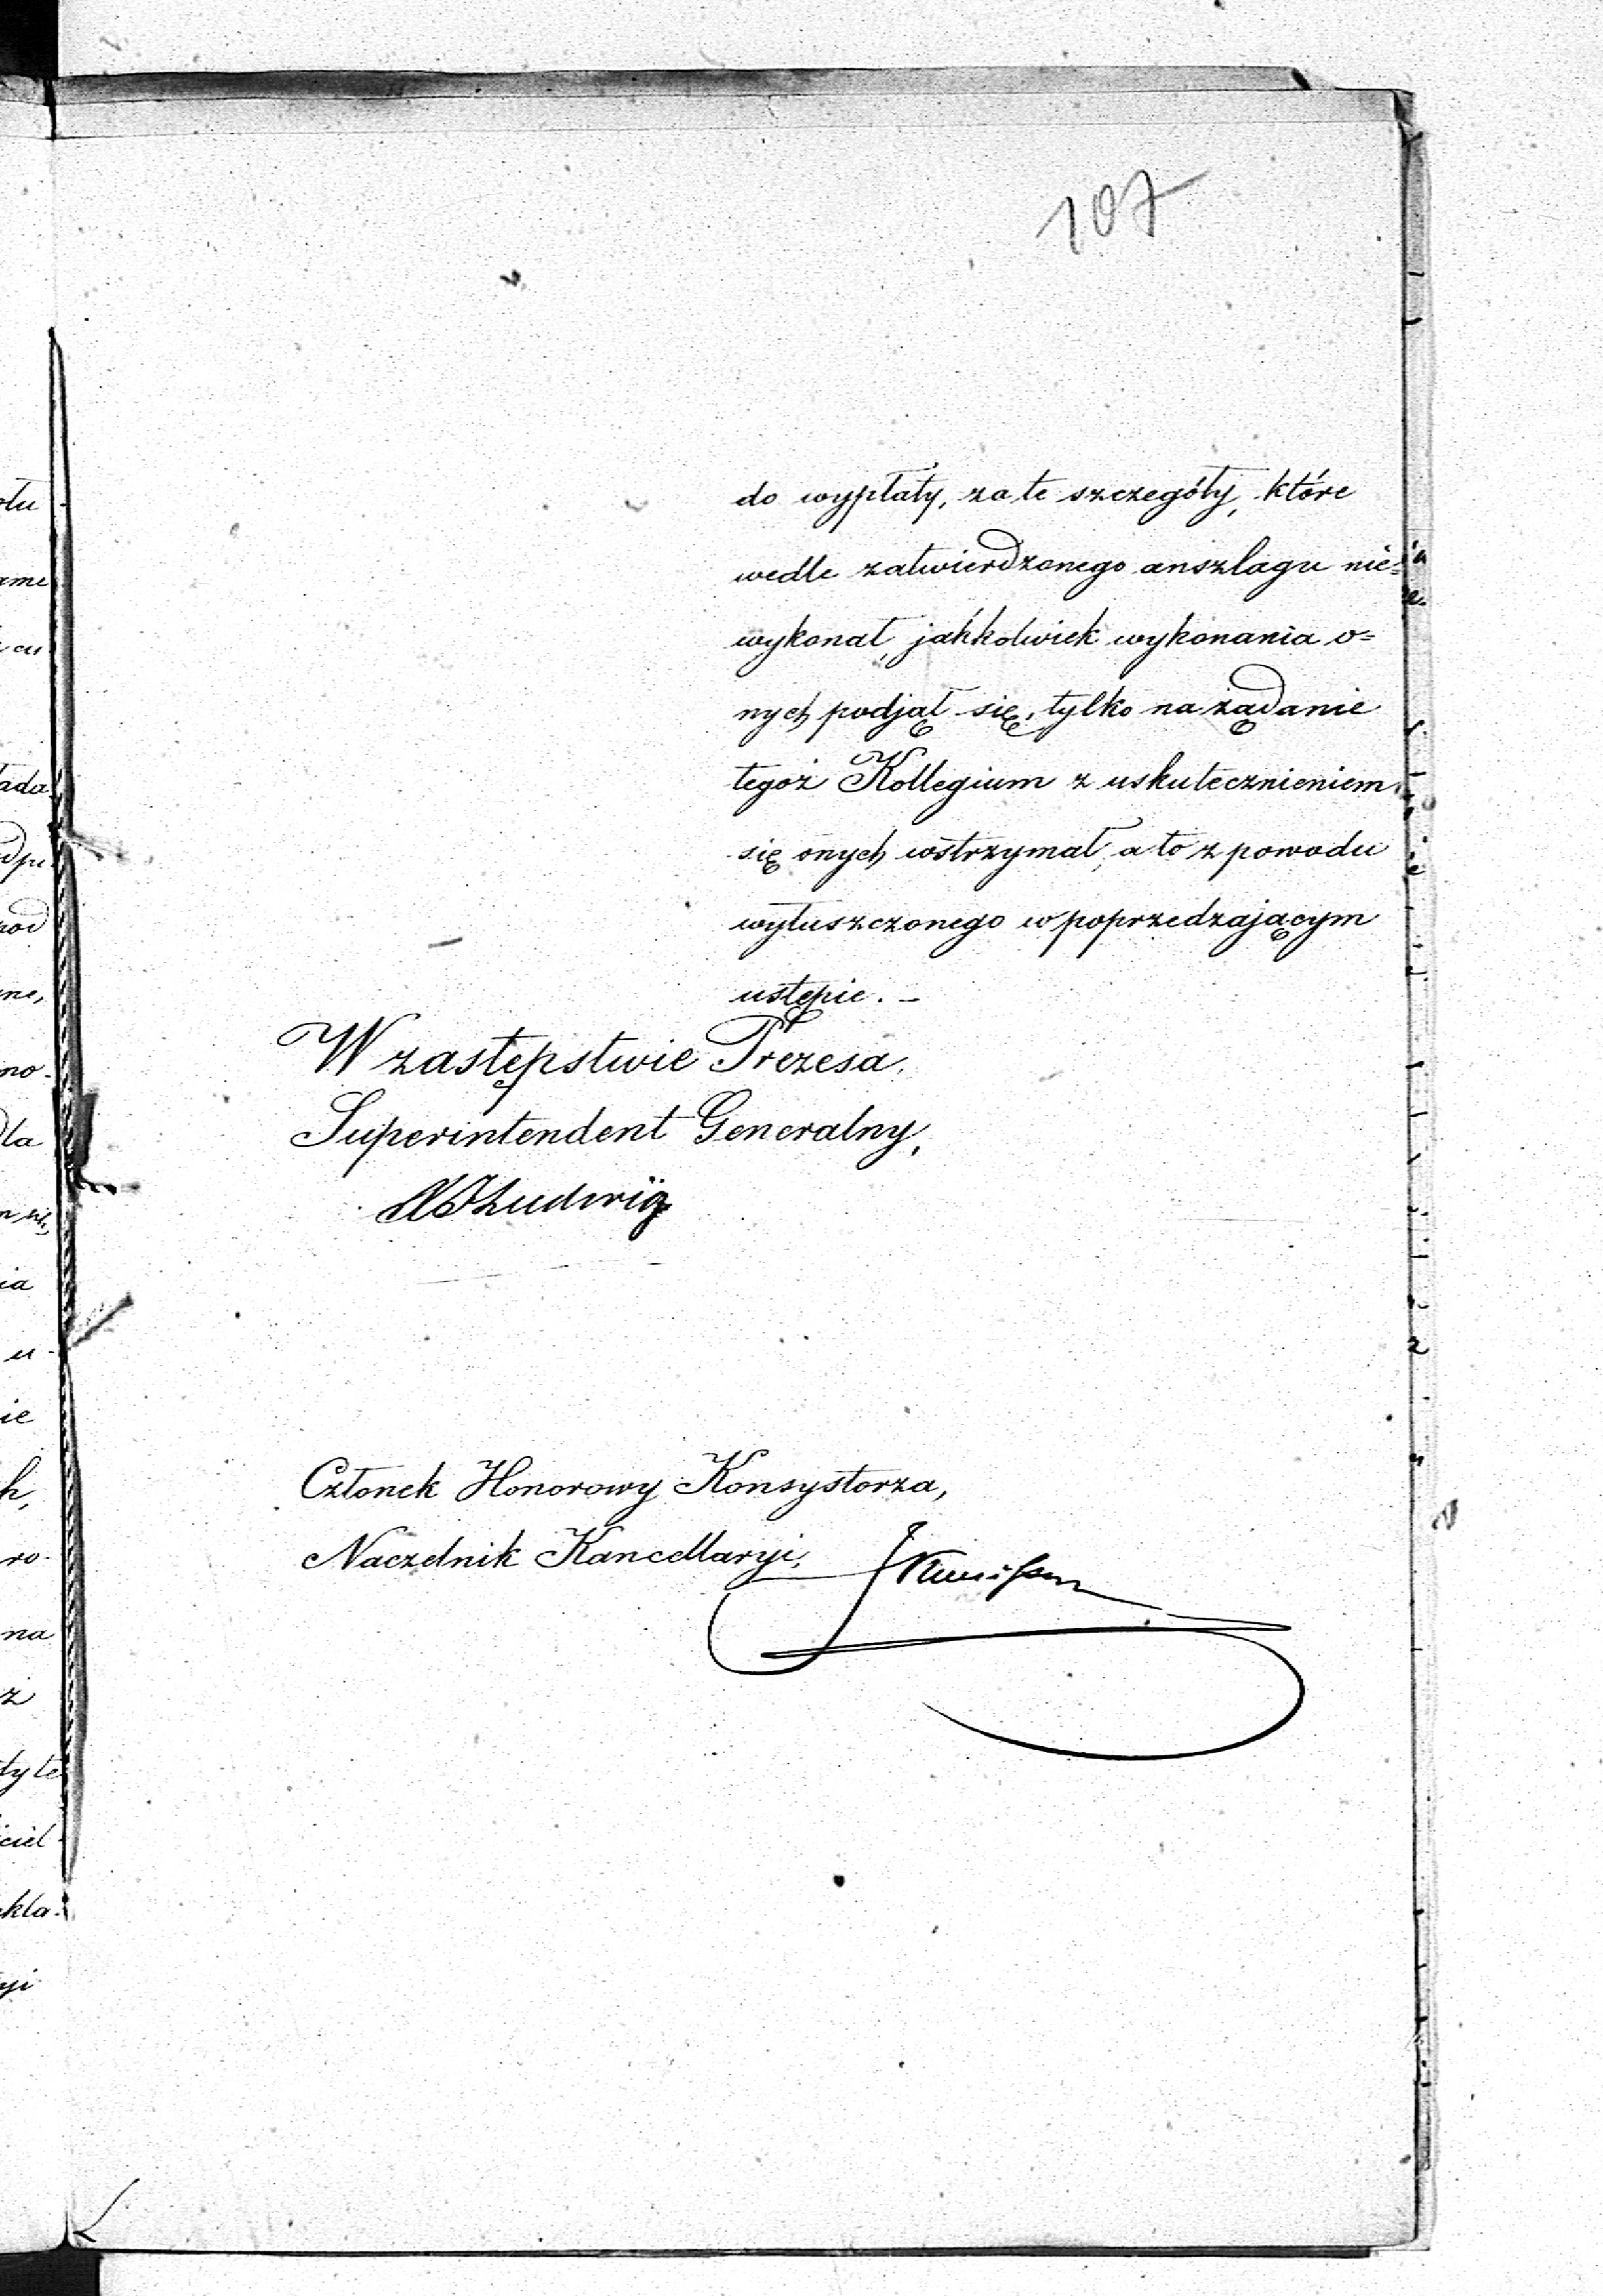 107
do wypłaty, za te szczegóły, które
wedle zatwierdzonego anszlagu nie=
wykonał, jakkolwiek wykonania o=
nych podjął się, tylko na żądanie
tegoż Kollegium z uskutecznieniem
się onych wstrzymał, a to z powodu
wyłuszczonego w poprzedzającym
ustępie. –
W zastępstwie Prezesa,
Superintendent Generalny,
Ludwig
Członek Honorowy Konsystorza,
Naczelnik Kancellaryi,